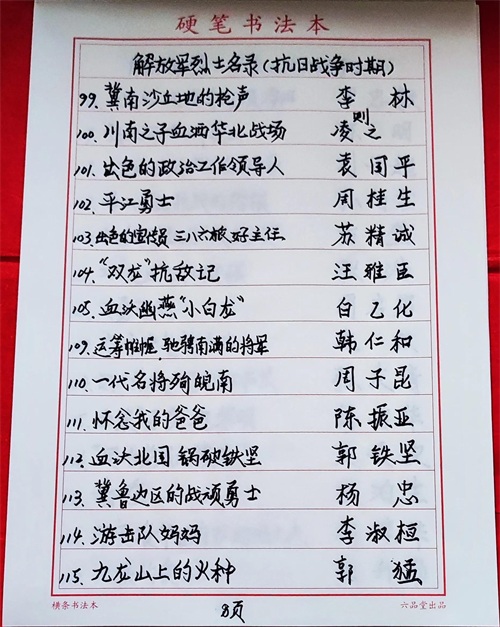 硬笔书法本
解放军烈士名录(抗日战争时期)
99、冀南沙丘地的枪声 李林
100、川南之子血洒华北战场 凌则之
101、出色的政治工作领导人 袁国平
102、平江勇士 周桂生
103、出色的宣传员 三八六旅好主任 苏精诚
104、“双龙”抗敌记 汪雅臣
105、血沃幽燕“小白龙” 白乙化
109、运筹帷幄、驰骋南满的将军 韩仁和
110、一代名将殉皖南 周子昆
111、怀念我的爸爸 陈振亚
112、血沃北国 锅破铁坚 郭铁坚
113、冀鲁边区的战顽勇士 杨忠
114、游击队妈妈 李淑桓
115、九龙山上的火种 郭猛
横条书法本 六品堂出品
8页